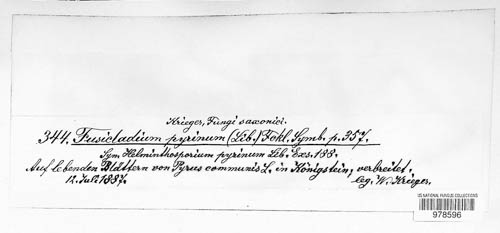 Krieger, Fungi saxonici.
344. Fusicladium pyrinum (Lib.) Fckl. Symb. p. 357.
Syn. Helminthosporium pyrinum Lib. Exs. 188.
Auf lebenden Blättern von Pyrus communis L. in Königstein, verbreitet.
12. Juli 1887. leg. W. Krieger.
US NATIONAL FUNGUS COLLECTIONS
BPI
978596